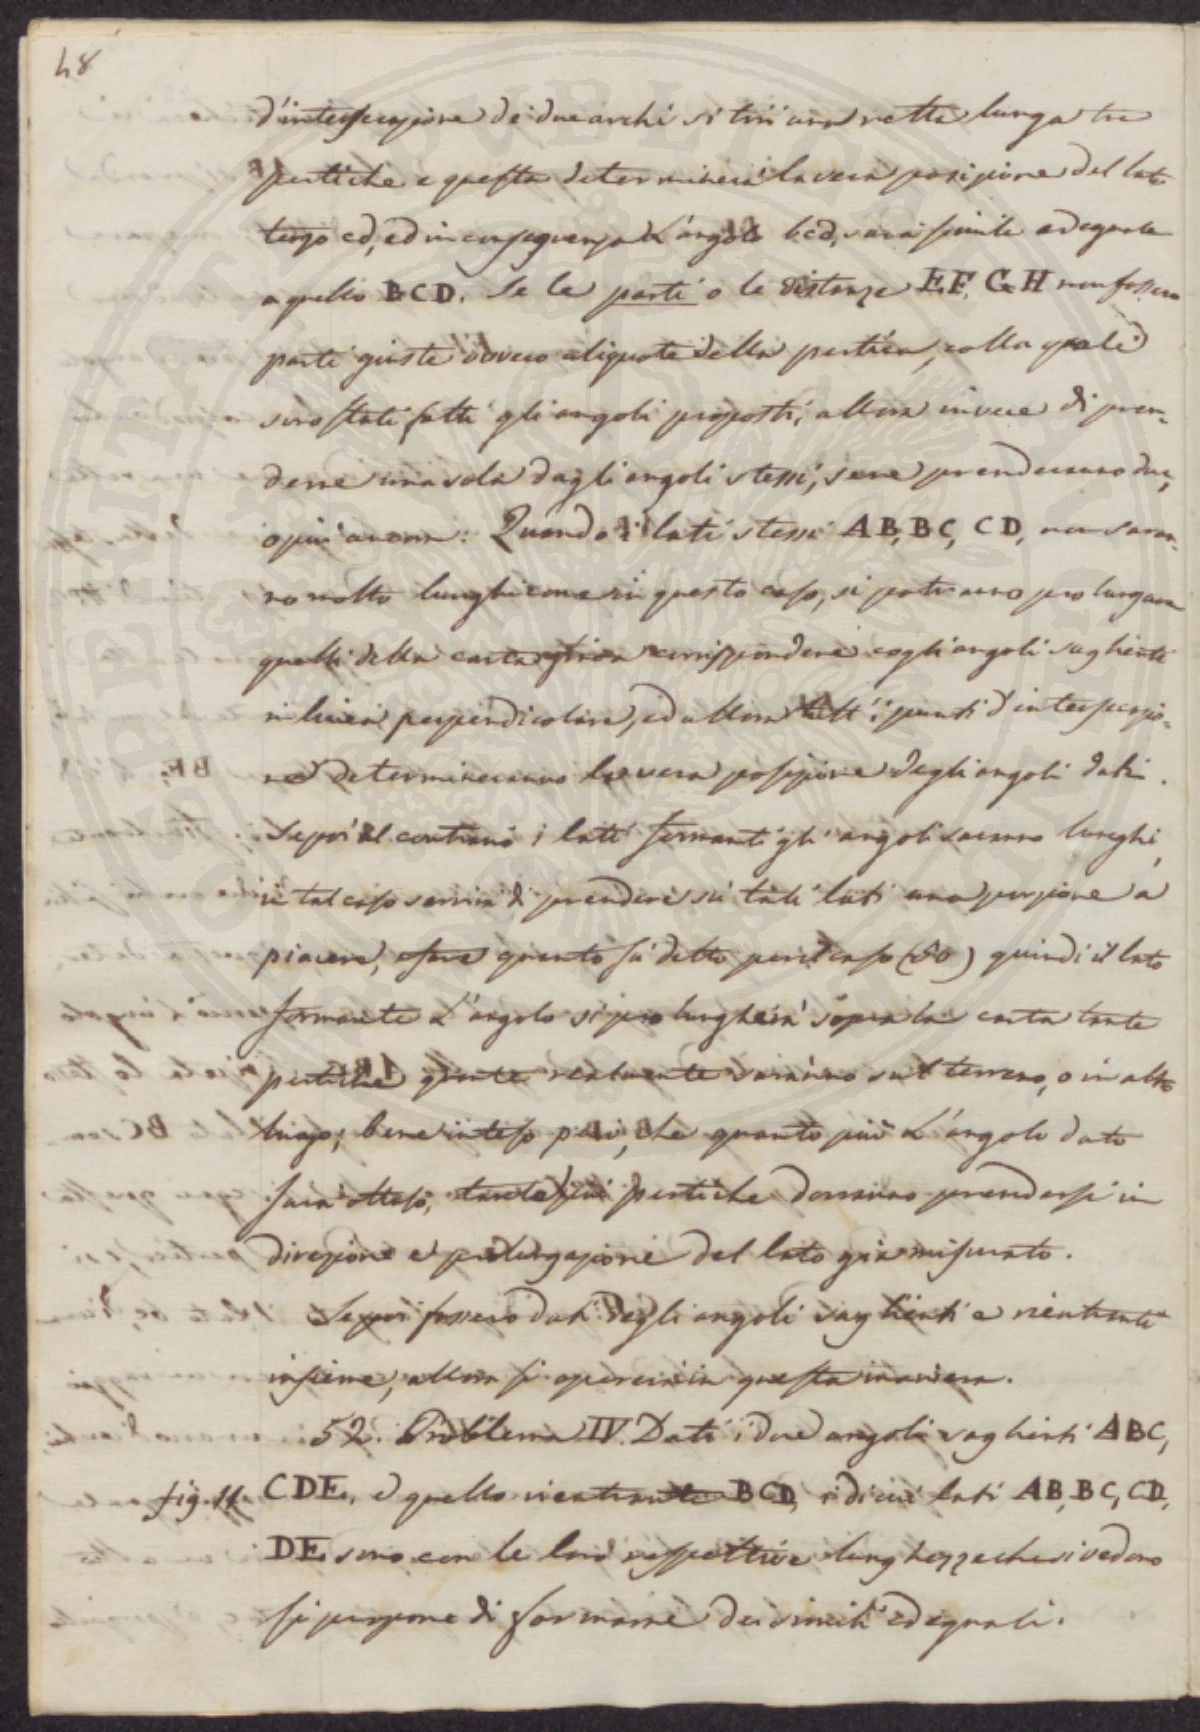 48
d'intersezione de due archi si tiri una retta lunga tre
pertiche e questa determinerà la vera posizione del lato
terzo cd, ed in conseguenza L'angolo bcd, sarà simile ed eguale
a quello BCD. Se le parti o le distanze EF, GH non fossero
parti giuste ovvero aliquote della pertica, colla quale
sono stati fatti gli angoli proposti, allora invece di pren-
derne una sola dagli angoli stessi, se ne prenderanno due,
o più ancora. Quando i lati stessi AB, BC, CD, non saran-
no molto lunghi come in questo caso, si potranno prolungare
quelli della carta corrispondere cogli angoli saglienti
in linea perpendicolare, ed allora tutt'i punti d'intersezio-
ne determineranno la vera posizione degli angoli dati.
Se poi al contrario i lati formanti gli angoli saranno lunghi,
in tal caso servirà di prendere sù tali lati una porzione a
piacere, e fare quanto fù detto per il caso (50) quindi il lato
formante L'angolo si prolungherà sopra la carta tante
pertiche quante realmente saranno sul terreno, o in altro
luogo; bene inteso però, che quanto più L'angolo dato
sarà ottuso, tante più pertiche dovranno prendersi in
direzione e prolungazione del lato già misurato.
Se poi fossero dati degli angoli saglienti e rientranti
insieme, allora si opererà in questa maniera.
52. Problema IV. Dati i due angoli saglienti ABC,
fig. 11. CDE, e quello rientrante BCD, i di cui lati AB, BC, CD,
DE sono con le loro rispettive lunghezze che si vedono
si propone di formarne dei simili ed eguali.